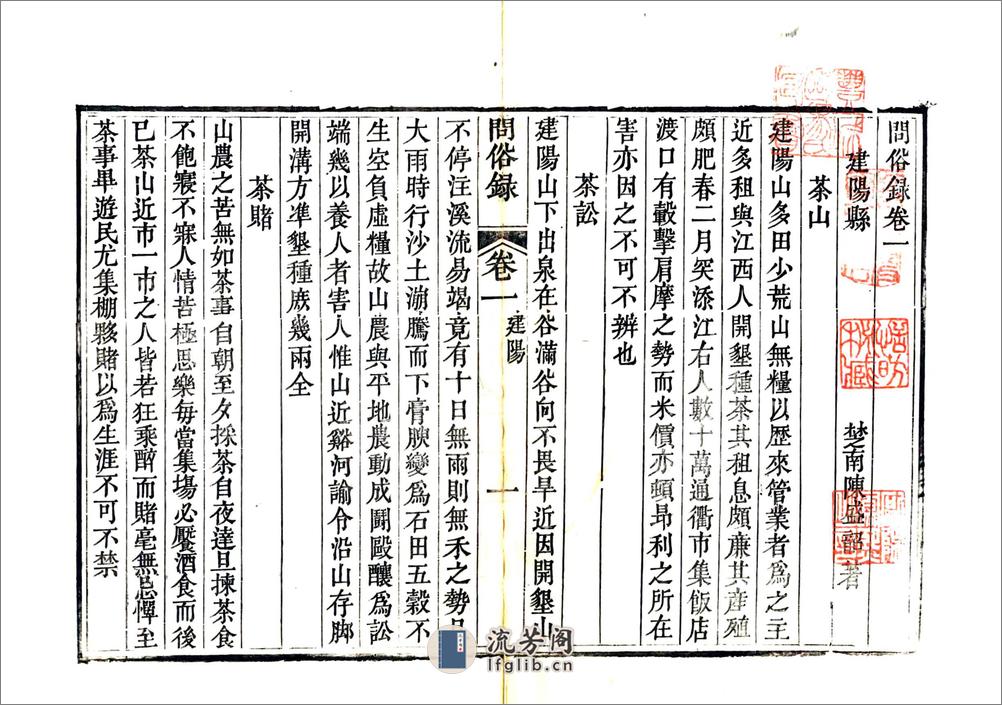 問俗錄卷一
建陽縣 楚南陳盛韶著
茶山
建陽山多田少荒山無糧以歷來管業者爲之主
近多租與江西人開墾種茶其租息頗廉其產殖
頗肥春二月突添江右人數十萬通衢市集飯店
渡口有轂擊肩摩之勢而米價亦頓昂利之所在
害亦因之不可不辨也
茶訟
建陽山下出泉在谷滿谷向不畏旱近因開墾山
問俗錄 卷一 建陽 一
不停注溪流易竭竟有十日無雨則無禾之勢且
大雨時行沙土漰騰而下膏腴變爲石田五穀不
生空負虛糧故山農與平地農動成鬭毆釀爲訟
端幾以養人者害人惟山近谿河諭令沿山存脚
開溝方准墾種庶幾兩全
茶賭
山農之苦無如茶事自朝至夕採茶自夜達旦揀茶食
不飽寢不寐人情苦極思樂每當集場必饜酒食而後
已茶山近市一市之人皆若狂乘醉而賭毫無忌憚至
茶事畢遊民尤集棚夥賭以爲生涯不可不禁
流芳阁
lfglib.cn